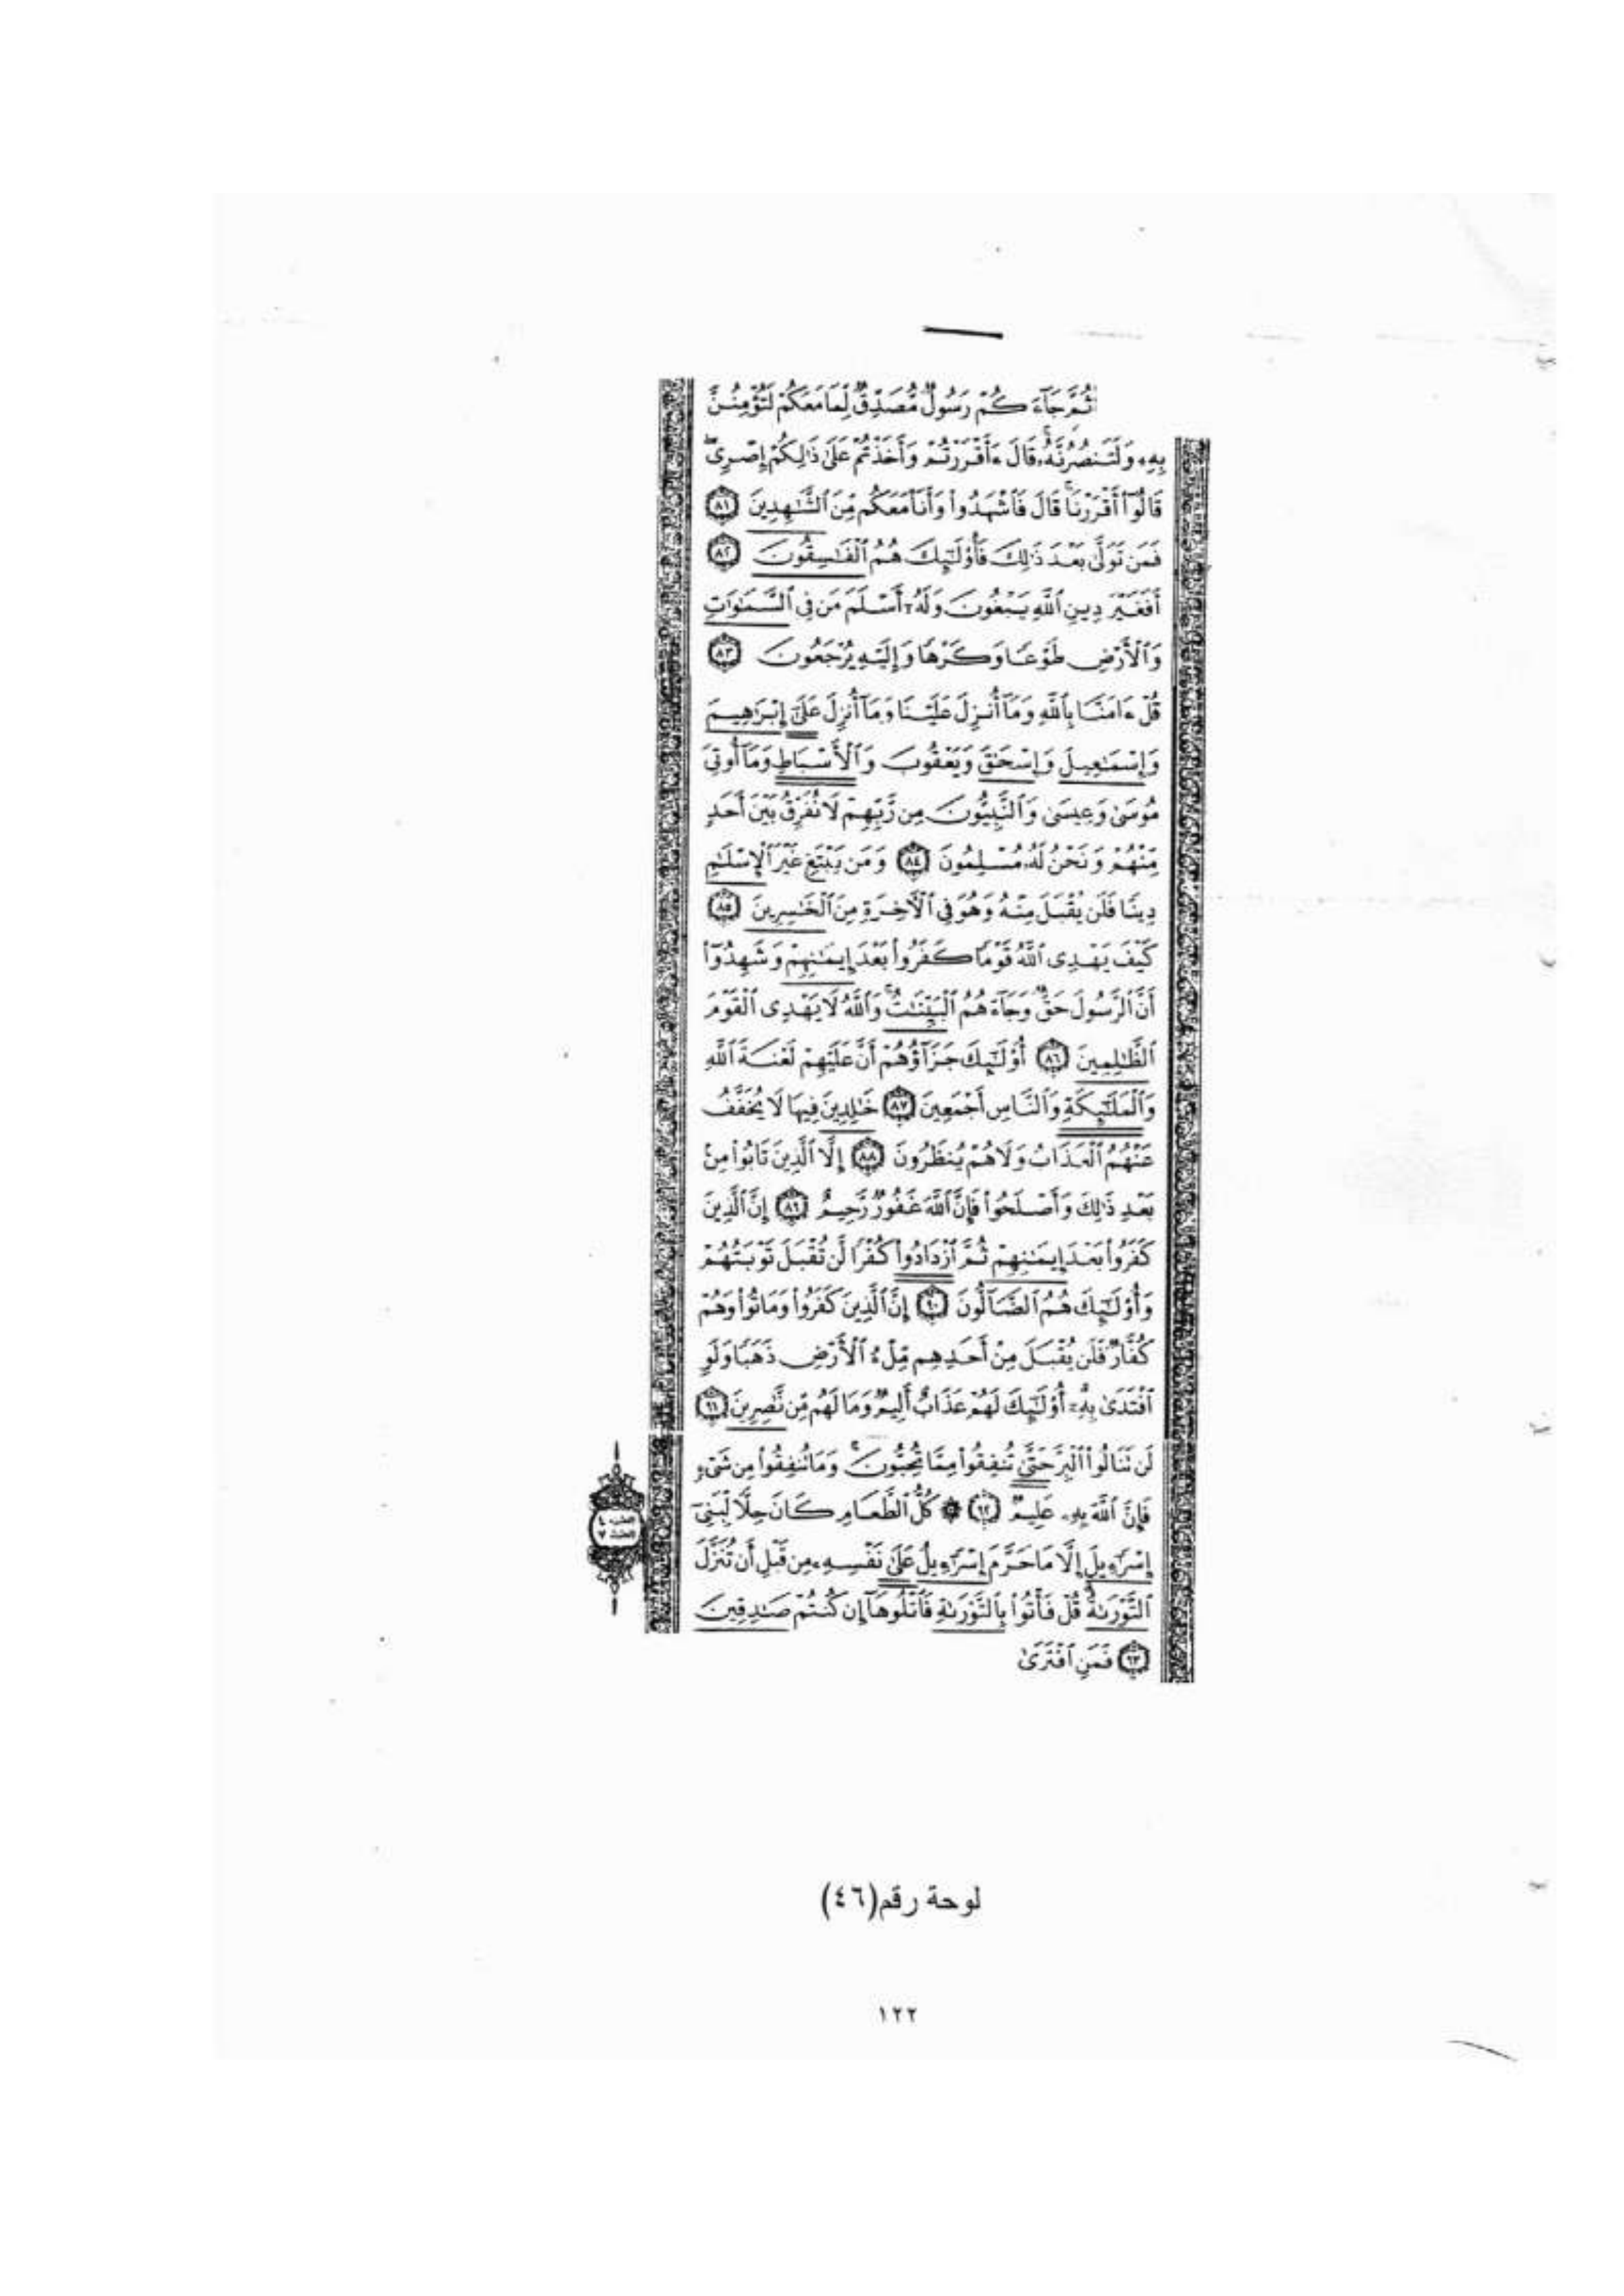 ثُمَّ جَآءَ كُمْ رَسُولٌ مُّصَدِّقٌ لِّمَا مَعَكُمْ لَتُؤْمِنُنَّ
بِهِۦ وَلَتَنصُرُنَّهُۥۚ قَالَ ءَأَقْرَرْتُمْ وَأَخَذْتُمْ عَلَىٰ ذَٰلِكُمْ إِصْرِىۖ
قَالُوٓا۟ أَقْرَرْنَاۚ قَالَ فَٱشْهَدُوا۟ وَأَنَا۠ مَعَكُم مِّنَ ٱلشَّٰهِدِينَ ٨١
فَمَن تَوَلَّىٰ بَعْدَ ذَٰلِكَ فَأُو۟لَٰٓئِكَ هُمُ ٱلْفَٰسِقُونَ ٨٢
أَفَغَيْرَ دِينِ ٱللَّهِ يَبْغُونَ وَلَهُۥٓ أَسْلَمَ مَن فِى ٱلسَّمَٰوَٰتِ
وَٱلْأَرْضِ طَوْعًا وَكَرْهًا وَإِلَيْهِ يُرْجَعُونَ ٨٣
قُلْ ءَامَنَّا بِٱللَّهِ وَمَآ أُنزِلَ عَلَيْنَا وَمَآ أُنزِلَ عَلَىٰٓ إِبْرَٰهِيمَ
وَإِسْمَٰعِيلَ وَإِسْحَٰقَ وَيَعْقُوبَ وَٱلْأَسْبَاطِ وَمَآ أُوتِىَ
مُوسَىٰ وَعِيسَىٰ وَٱلنَّبِيُّونَ مِن رَّبِّهِمْ لَا نُفَرِّقُ بَيْنَ أَحَدٍ
مِّنْهُمْ وَنَحْنُ لَهُۥ مُسْلِمُونَ ٨٤ وَمَن يَبْتَغِ غَيْرَ ٱلْإِسْلَٰمِ
دِينًا فَلَن يُقْبَلَ مِنْهُ وَهُوَ فِى ٱلْءَاخِرَةِ مِنَ ٱلْخَٰسِرِينَ ٨٥
كَيْفَ يَهْدِى ٱللَّهُ قَوْمًا كَفَرُوا۟ بَعْدَ إِيمَٰنِهِمْ وَشَهِدُوٓا۟
أَنَّ ٱلرَّسُولَ حَقٌّ وَجَآءَهُمُ ٱلْبَيِّنَٰتُۚ وَٱللَّهُ لَا يَهْدِى ٱلْقَوْمَ
ٱلظَّٰلِمِينَ ٨٦ أُو۟لَٰٓئِكَ جَزَآؤُهُمْ أَنَّ عَلَيْهِمْ لَعْنَةَ ٱللَّهِ
وَٱلْمَلَٰٓئِكَةِ وَٱلنَّاسِ أَجْمَعِينَ ٨٧ خَٰلِدِينَ فِيهَا لَا يُخَفَّفُ
عَنْهُمُ ٱلْعَذَابُ وَلَا هُمْ يُنظَرُونَ ٨٨ إِلَّا ٱلَّذِينَ تَابُوا۟ مِنۢ
بَعْدِ ذَٰلِكَ وَأَصْلَحُوا۟ فَإِنَّ ٱللَّهَ غَفُورٌ رَّحِيمٌ ٨٩ إِنَّ ٱلَّذِينَ
كَفَرُوا۟ بَعْدَ إِيمَٰنِهِمْ ثُمَّ ٱزْدَادُوا۟ كُفْرًا لَّن تُقْبَلَ تَوْبَتُهُمْ
وَأُو۟لَٰٓئِكَ هُمُ ٱلضَّآلُّونَ ٩٠ إِنَّ ٱلَّذِينَ كَفَرُوا۟ وَمَاتُوا۟ وَهُمْ
كُفَّارٌ فَلَن يُقْبَلَ مِنْ أَحَدِهِم مِّلْءُ ٱلْأَرْضِ ذَهَبًا وَلَوِ
ٱفْتَدَىٰ بِهِۦٓۗ أُو۟لَٰٓئِكَ لَهُمْ عَذَابٌ أَلِيمٌ وَمَا لَهُم مِّن نَّٰصِرِينَ ٩١
لَن تَنَالُوا۟ ٱلْبِرَّ حَتَّىٰ تُنفِقُوا۟ مِمَّا تُحِبُّونَۚ وَمَا تُنفِقُوا۟ مِن شَىْءٍ
فَإِنَّ ٱللَّهَ بِهِۦ عَلِيمٌ ٩٢ ۞ كُلُّ ٱلطَّعَامِ كَانَ حِلًّا لِّبَنِىٓ
إِسْرَٰٓءِيلَ إِلَّا مَا حَرَّمَ إِسْرَٰٓءِيلُ عَلَىٰ نَفْسِهِۦ مِن قَبْلِ أَن تُنَزَّلَ
ٱلتَّوْرَىٰةُۗ قُلْ فَأْتُوا۟ بِٱلتَّوْرَىٰةِ فَٱتْلُوهَآ إِن كُنتُمْ صَٰدِقِينَ
٩٣ فَمَنِ ٱفْتَرَىٰ
لوحة رقم (٤٦)
١٢٢